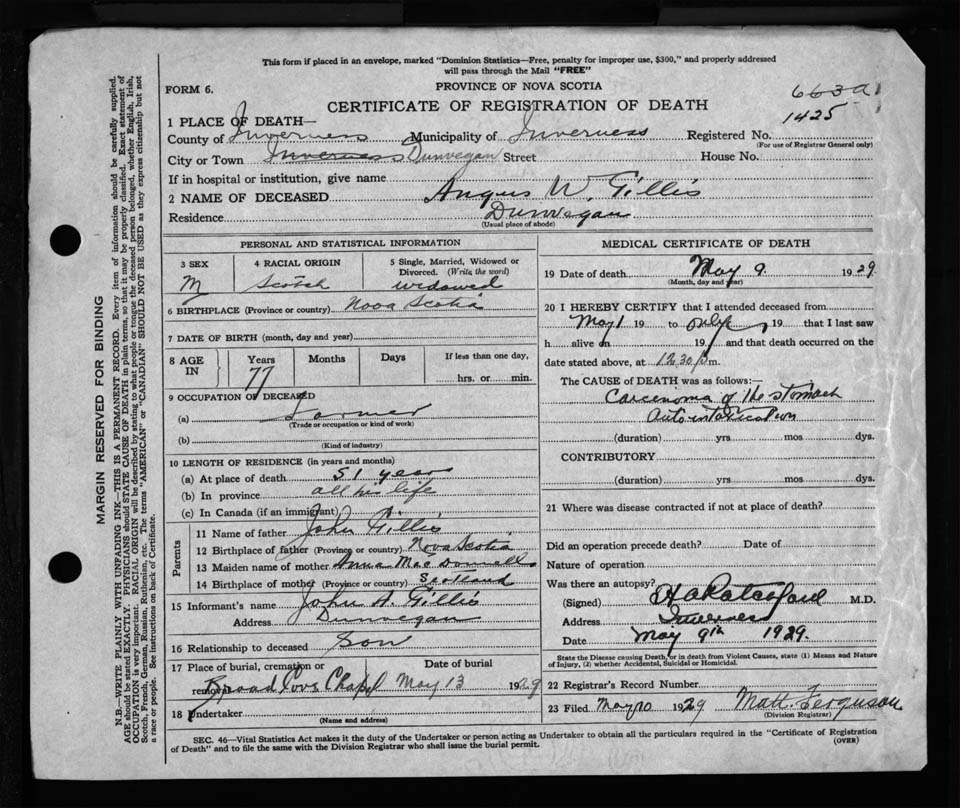 This form if placed in an envelope, marked "Dominion Statistics—Free, penalty for improper use, $300," and properly addressed
will pass through the Mail "FREE"
FORM 6.
PROVINCE OF NOVA SCOTIA
CERTIFICATE OF REGISTRATION OF DEATH
1425
1 PLACE OF DEATH—
County of Inverness Municipality of Inverness Registered No.
(For use of Registrar General only)
City or Town Inverness Dunvegan Street House No.
If in hospital or institution, give name
2 NAME OF DECEASED Angus W. Gillis
Residence Dunvegan
(Usual place of abode)
PERSONAL AND STATISTICAL INFORMATION
3 SEX
M
4 RACIAL ORIGIN
Scotch
5 Single, Married, Widowed or
Divorced. (Write the word)
widowed
6 BIRTHPLACE (Province or country) Nova Scotia
7 DATE OF BIRTH (month, day and year)
8 AGE
IN
Years
77
Months
Days
If less than one day,
hrs. or min.
9 OCCUPATION OF DECEASED
(a) Farmer
(Trade or occupation or kind of work)
(b)
(Kind of industry)
10 LENGTH OF RESIDENCE (in years and months)
(a) At place of death 51 years
(b) In province all his life
(c) In Canada (if an immigrant)
Parents
11 Name of father John Gillis
12 Birthplace of father (Province or country) Nova Scotia
13 Maiden name of mother Anna MacDonnell
14 Birthplace of mother (Province or country) Scotland
15 Informant's name John A. Gillis
Address Dunvegan
16 Relationship to deceased Son
17 Place of burial, cremation or
removal Broad Cove Chapel
Date of burial
May 13 1929
18 Undertaker
(Name and address)
MEDICAL CERTIFICATE OF DEATH
19 Date of death May 9. 1929.
(Month, day and year)
20 I HEREBY CERTIFY that I attended deceased from
May 1 19 to only 19 that I last saw
h alive on 19 and that death occurred on the
date stated above, at 12.30 p m.
The CAUSE OF DEATH was as follows:—
Carcenoma of the stomach
Autointoxication
(duration) yrs mos dys.
CONTRIBUTORY
(duration) yrs mos dys.
21 Where was disease contracted if not at place of death?
Did an operation precede death? Date of
Nature of operation
Was there an autopsy?
(Signed) M.D.
Address Inverness
Date May 9th 1929.
State the Disease causing Death, or in death from Violent Causes, state (1) Means and Nature
of Injury, (2) whether Accidental, Suicidal or Homicidal.
22 Registrar's Record Number
23 Filed May 10 1929 Matt. Ferguson
(Division Registrar)
SEC. 46—Vital Statistics Act makes it the duty of the Undertaker or person acting as Undertaker to obtain all the particulars required in the "Certificate of Registration
of Death" and to file the same with the Division Registrar who shall issue the burial permit.
(OVER)
MARGIN RESERVED FOR BINDING
N.B.—WRITE PLAINLY WITH UNFADING INK—THIS IS A PERMANENT RECORD. Every item of information should be carefully supplied.
AGE should be stated EXACTLY. PHYSICIANS should STATE CAUSE OF DEATH in plain terms, so that it may be properly classified. Exact statement of
OCCUPATION is very important. RACIAL ORIGIN will be described by stating to what people or tongue the deceased person belonged, whether English, Irish,
Scotch, French, German, Russian, Ruthenian, etc. The terms "AMERICAN" or "CANADIAN" SHOULD NOT BE USED as they express citizenship but not
a race or people. See instructions on back of Certificate.